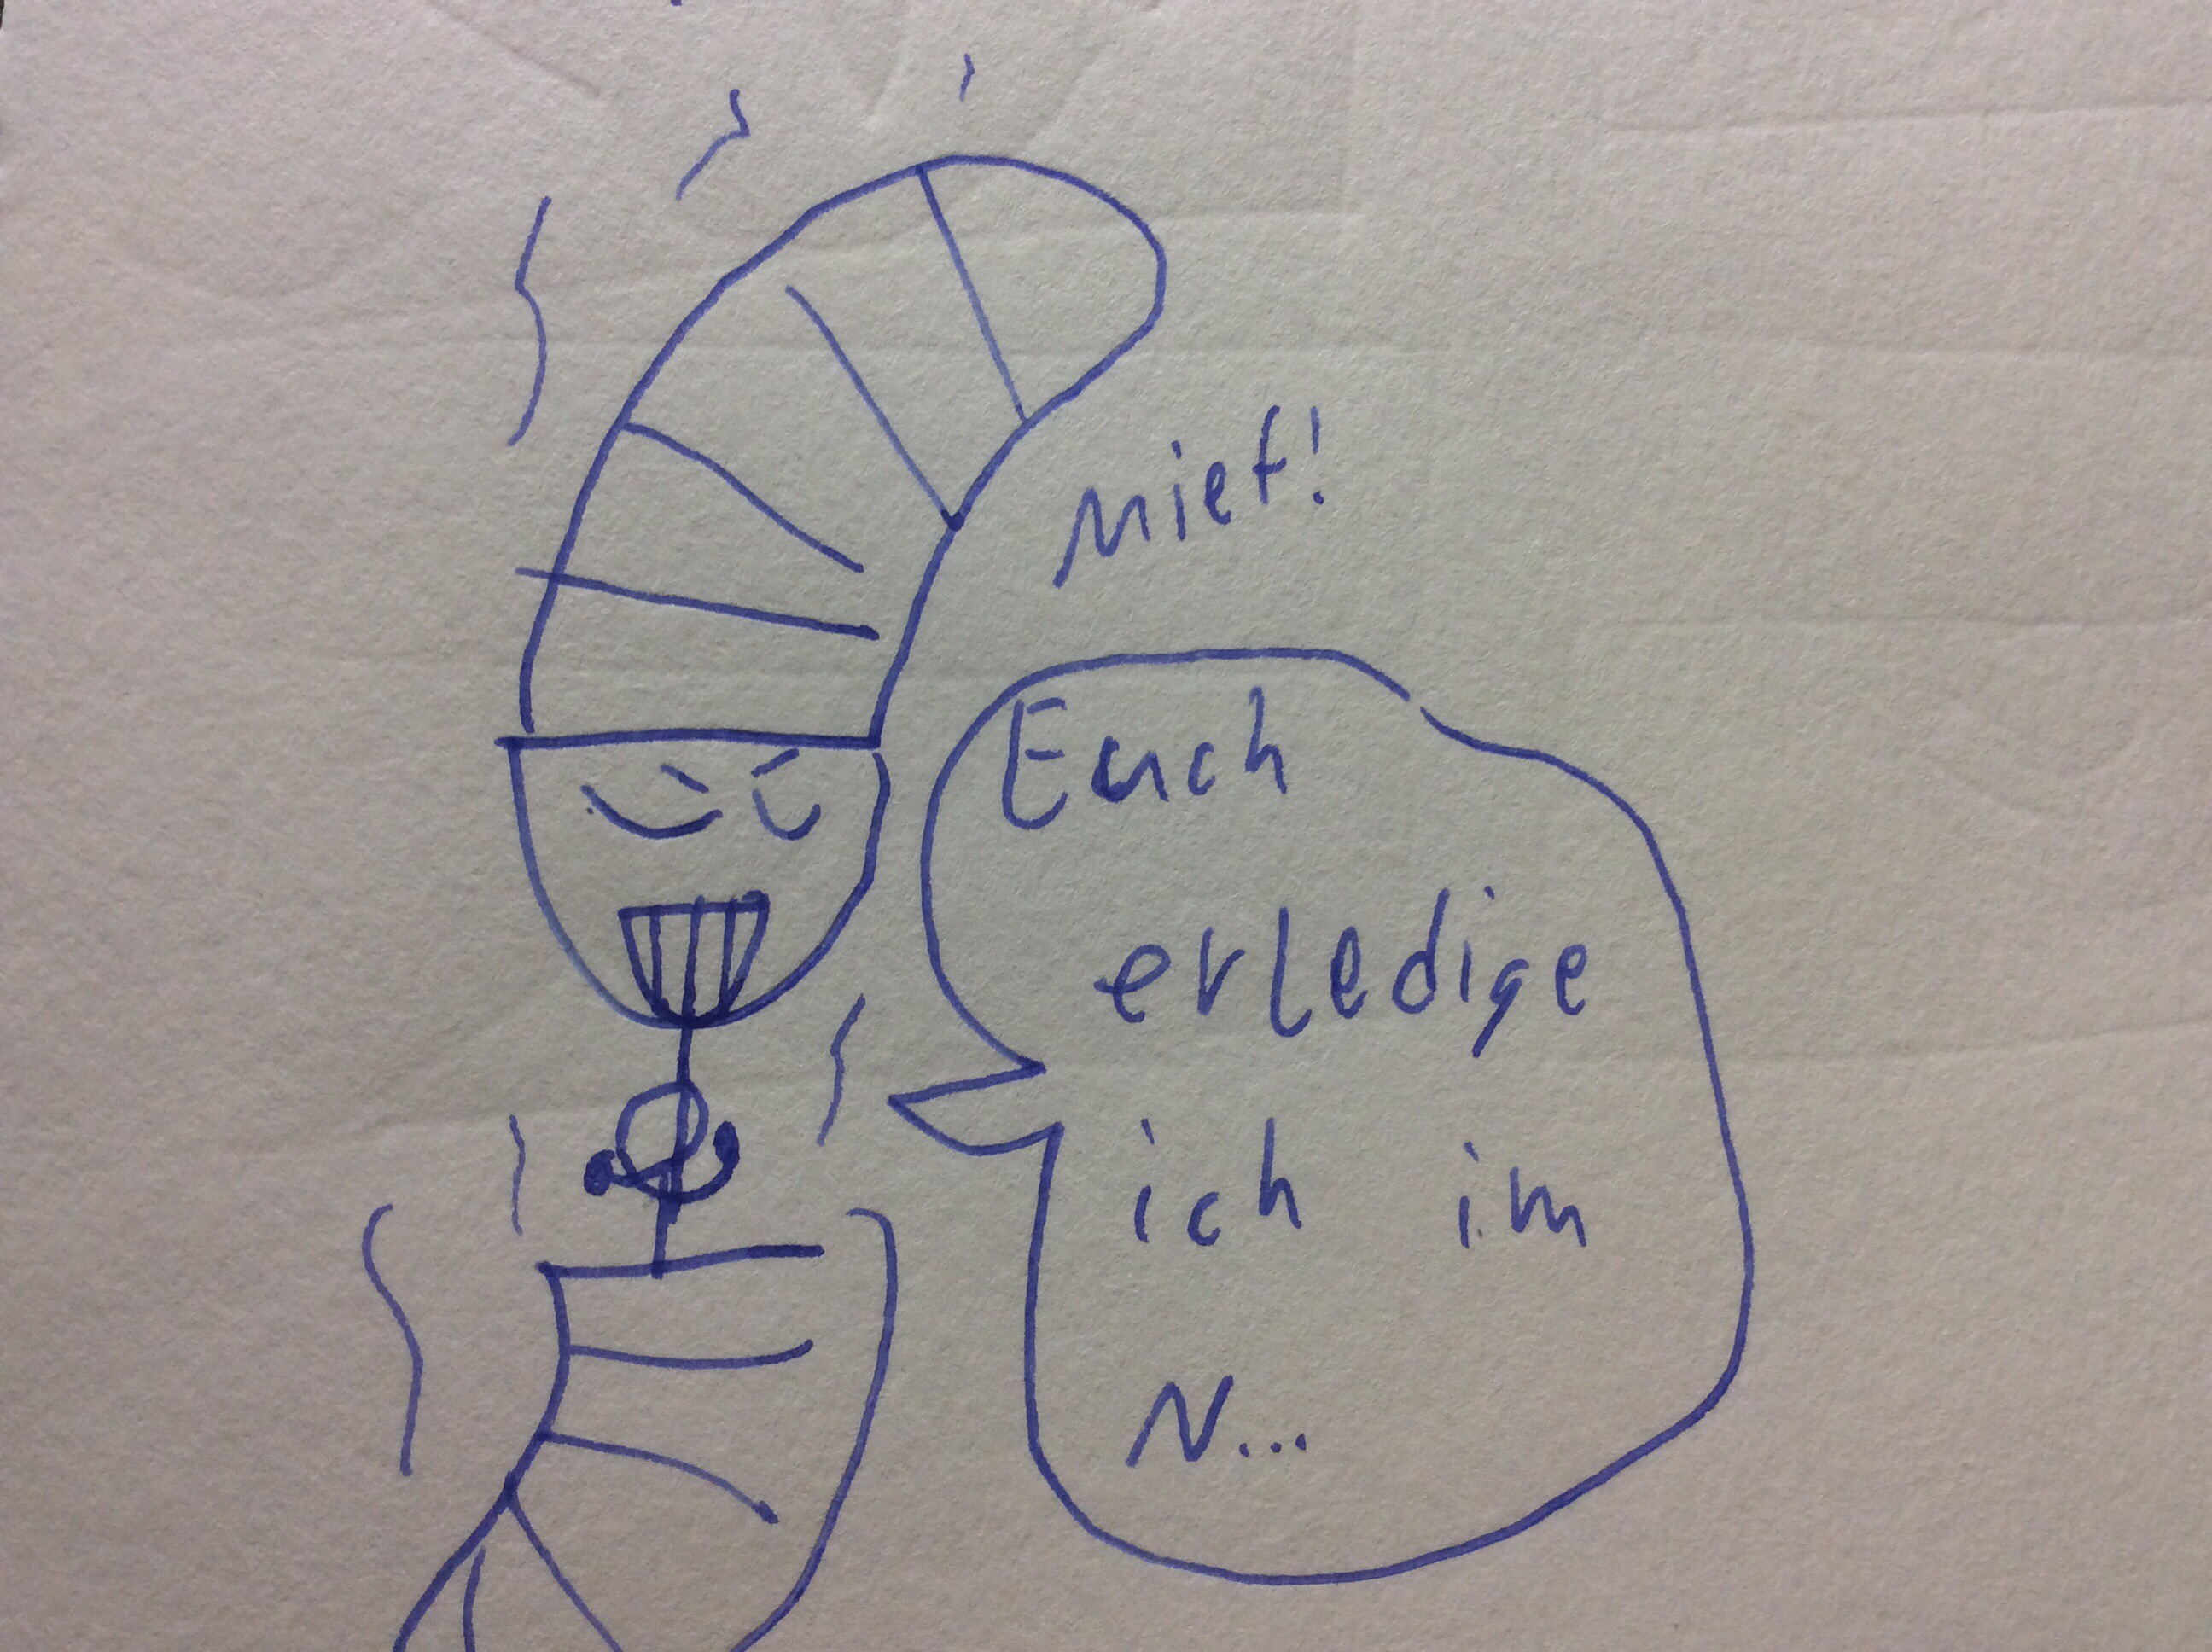 Mief!
Euch
erledige
ich im
N...